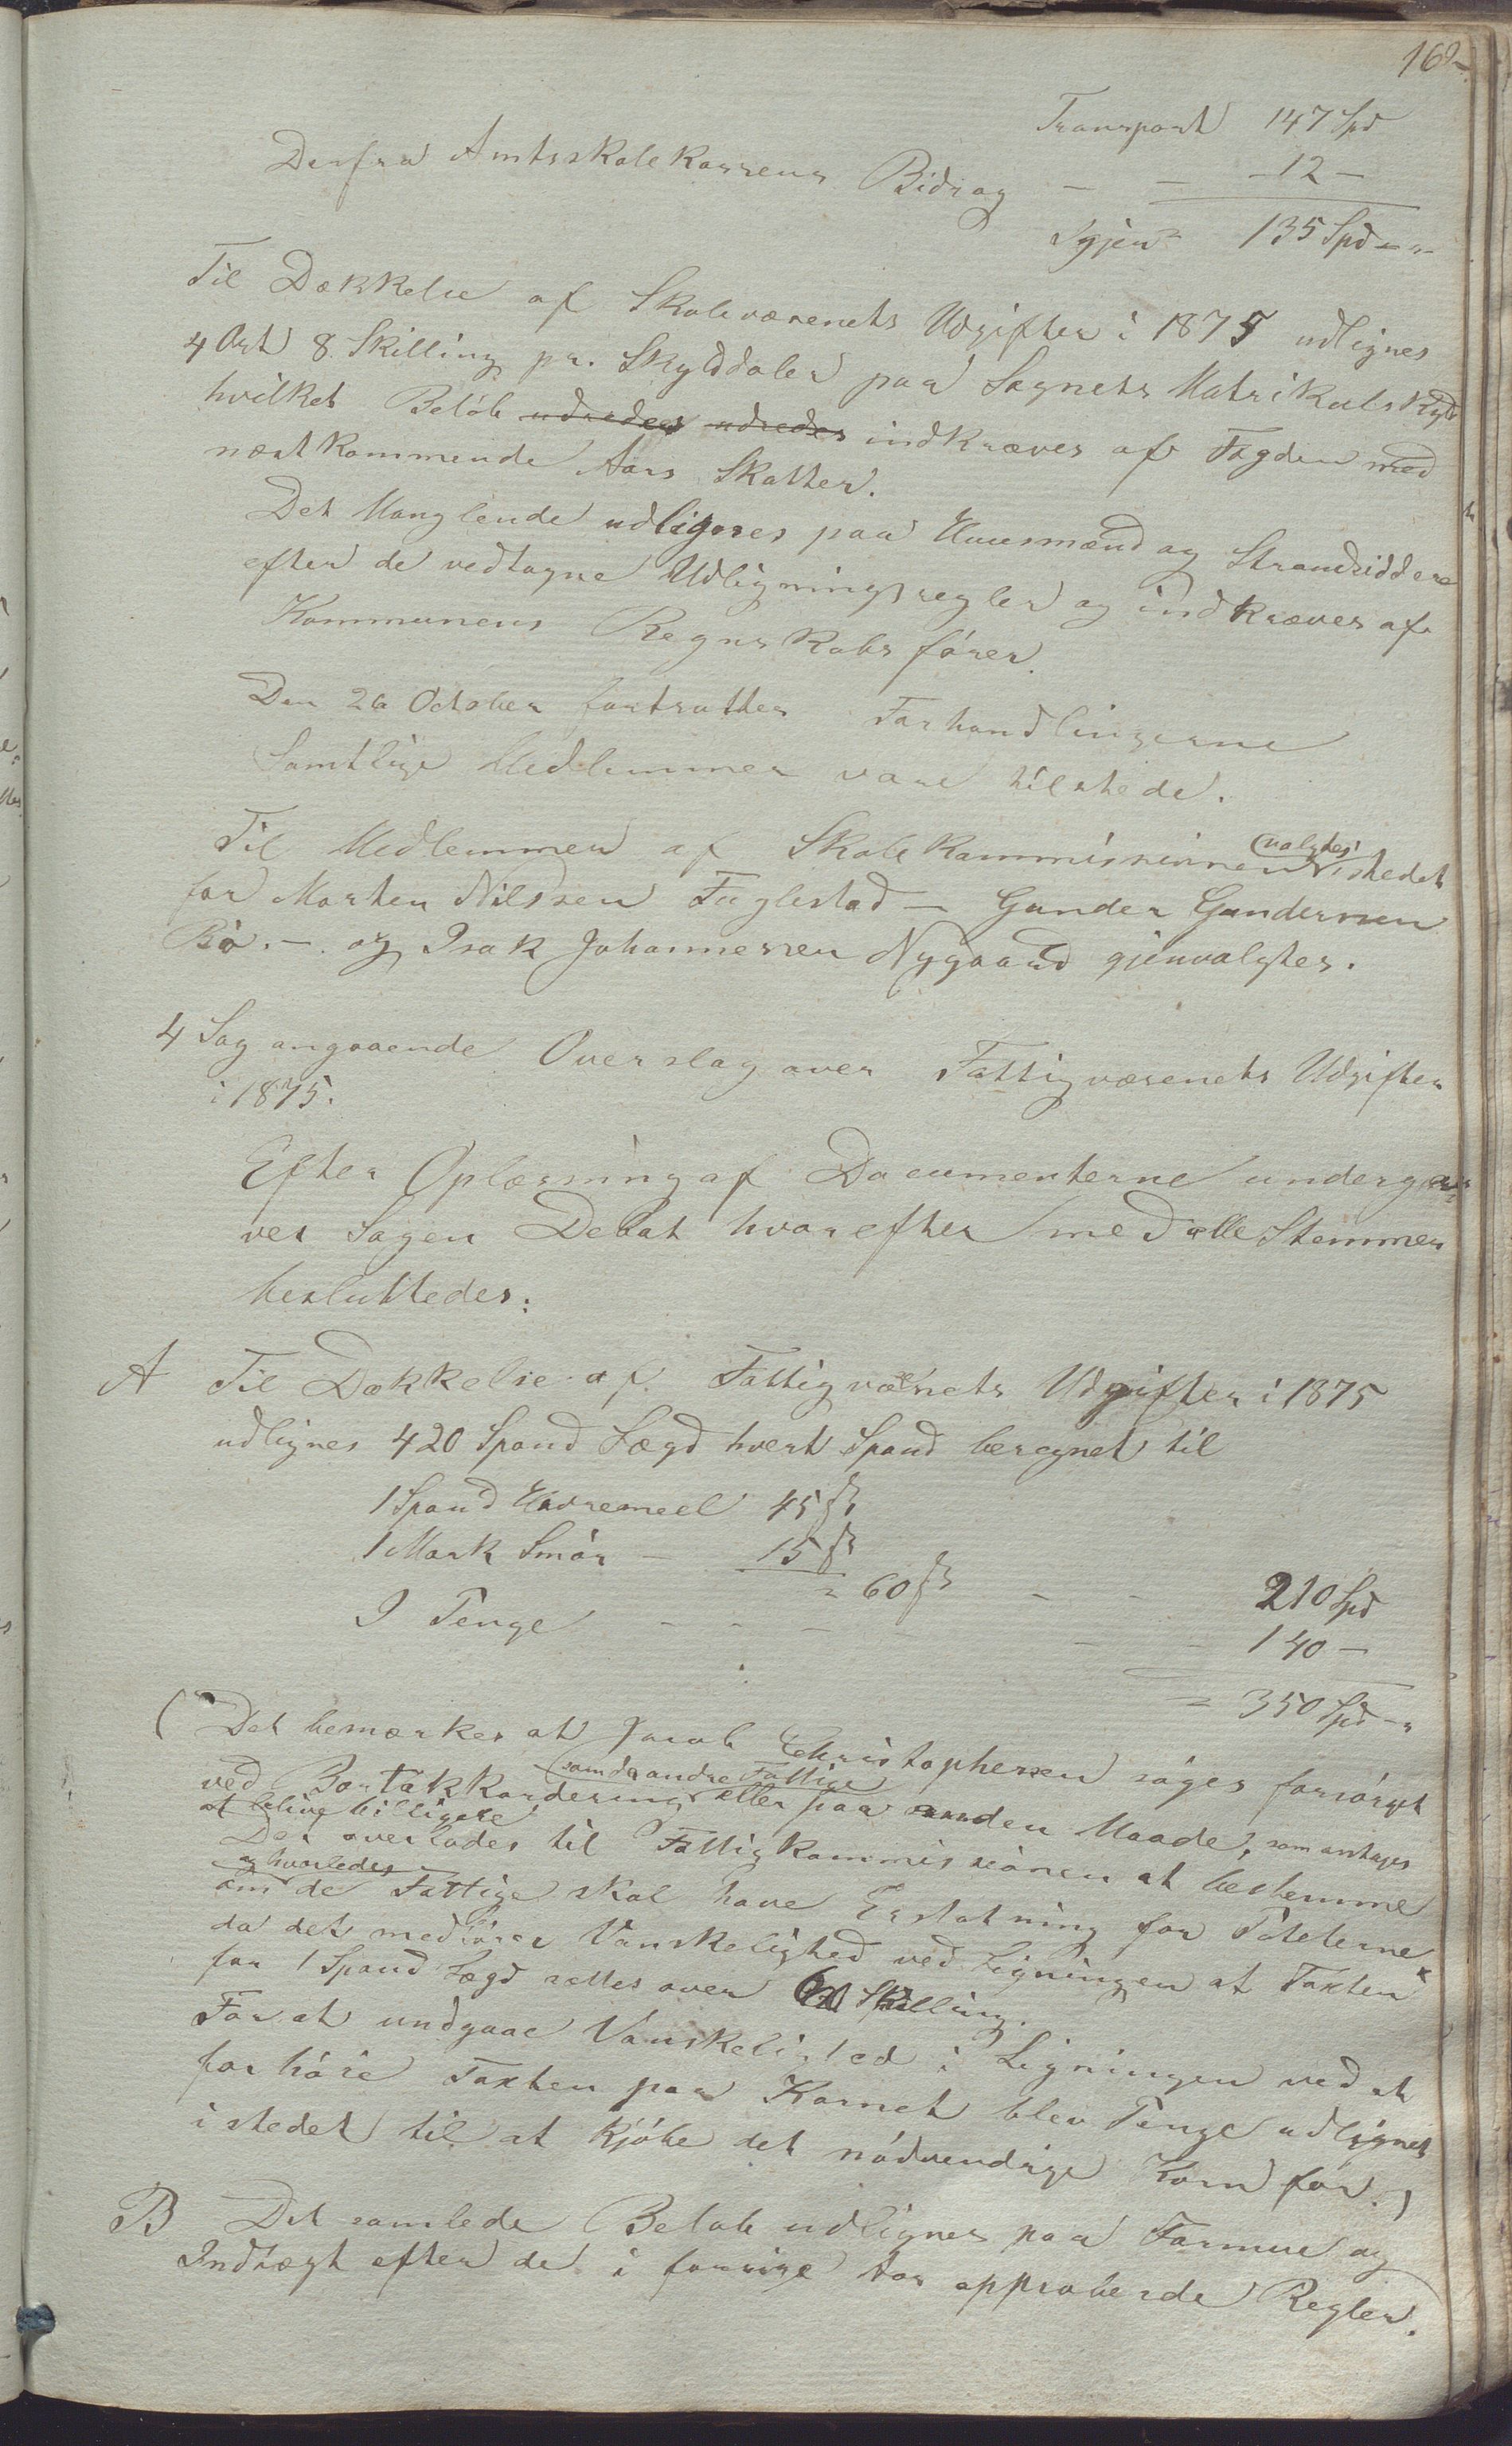 Transport 147 Spd
Derfra Amtsskolekassens Bidrag — — — 12 —
Igjen = 135 Spd - " -
Til Dækkelse af Skolevæsenets Udgifter i 1875 udlignes
4 Ort 8 Skilling pr. Skylddaler paa Sognets Matrikulskyld
hvilket Beløb udredes udredes indkræves af Fogden med
næstkommende Aars Skatter.
Det Manglende udlignes paa Huusmænd og Strandsiddere
efter de vedtagne Udligningsregler og indkræves af
Kommunens Regnskabsfører.
Den 26 October fortsattes Forhandlingerne
Samtlige Medlemmer vare tilstede.
Til Medlemmer af Skolekommissionen valgtes istedet
for Morten Nilssen Fuglestad — Gunder Gundersen
Bö. — og Isak Johannessen Nygaard gjenvalgtes.
4 Sag angaaende Overslag over Fattigvæsenets Udgifter
i 1875.
Efter Oplæsning af Documenterne undergaves
ves Sagen Debat hvorefter med alle Stemmer
besluttedes:
A Til Dækkelse af Fattigvæsenets Udgifter i 1875
udlignes 420 Spand Lægd hvert Spand beregnet til
1 Spand Havremeel 45 ß
1 Mark Smör — 15 ß
= 60 ß — — 210 Spd
I Penge — — — — — — 140 —
= 350 Spd - "
(Det bemærkes at Jacob Christophersen söges forsörget
som de andre Fattige
ved Bortakkordering eller paa anden Maade, som antages
at blive billigere
Det overlades til Fattigkommissionen at bestemme
og hvorledes
om de Fattige skal have Erstatning for Poteterne
da det medförer Vanskelighed ved Ligningen at Taxten
for 1 Spand Lægd sættes over 60 Skilling.
For at undgaae Vanskelighed i Ligningen ved at
forhöie Taxten paa Kornet blev Penge udlignet
istedet til at kjöbe det nödvendige Korn for.)
B Det samlede Belöb udlignes paa Formue og
Indtægt efter de i forrige Aar approberede Regler.